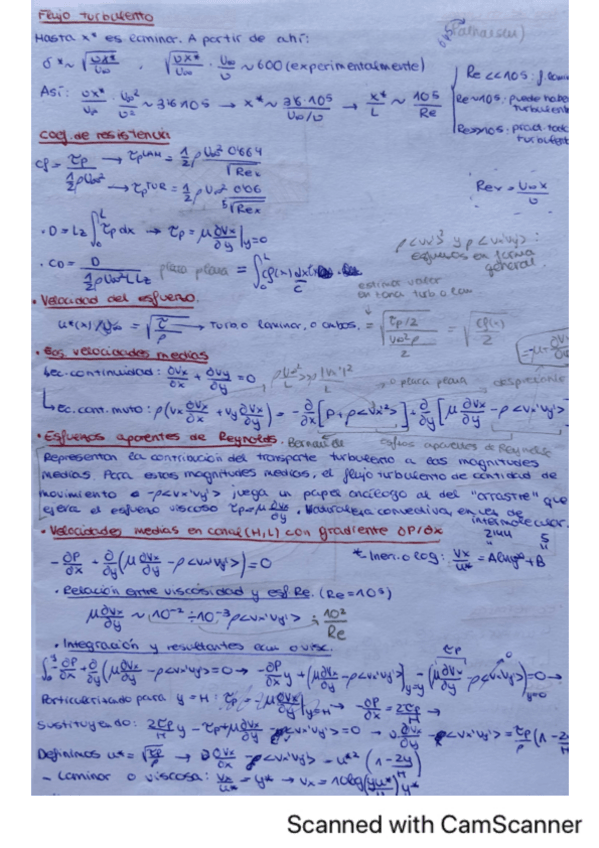 Flujo turbulento
Hasta x* es laminar. A partir de ahí:
δ*~√(υx*/U∞) , √(υx*/U∞) · U∞/υ ~ 600 (experimentalmente)
Re<<10⁵: f.
Así: υx*/U∞ · U∞²/υ² ~ 3'6·10⁵ → x* ~ 3'6·10⁵/(U∞/υ) → x*/L ~ 10⁵/Re
Re~10⁵: puede
turbulento
Re>>10⁵:
turbulent
Coef. de resistencia
Cf = τp/(½ρU∞²) → τp^LAM = ½ρU∞² 0'664/√Rex
→ τp^TUR = ½ρU∞² 0'06/⁵√Rex
Rex = U∞x/υ
· D = Lz∫₀ᴸ τp dx → τp = μ ∂Vx/∂y|y=0
ρ<vv> y ρ<vx'vj'>:
esfuerzos en forma
general
· CD = D/(½ρU∞²LLz) placa plana = ∫₀ᴸ cf(x)dx
estimar valor
en zona turb o lam
· Velocidad del esfuerzo.
u*(x)/U∞ = √(τ/ρ) → Turb. o laminar, o ambos, = √((τp/2)/(U∞²ρ/2)) = √(cf(x)/2)
· Ecs. velocidades medias
Ec. continuidad: ∂Vx/∂x + ∂Vy/∂y = 0
o placa plana
despreciable
Ec. cant. mvto: ρ(Vx ∂Vx/∂x + Vy ∂Vx/∂y) = -∂/∂x[P+ρ<Vx'²>] + ∂/∂y[μ ∂Vx/∂y - ρ<Vx'Vy'>
· Esfuerzos aparentes de Reynolds.
esfzos aparentes de Reynolds
Representan la contribución del transporte turbulento a las magnitudes
medias. Para estas magnitudes medias, el flujo turbulento de cantidad de
movimiento -ρ<Vx'Vy'> juega un papel análogo al del "arrastre" que
ejerce el esfuerzo viscoso τp=μ ∂Vx/∂y. Naturaleza convectiva, en vez de
intermolecular.
· Velocidades medias en canal (H,L) con gradiente ∂P/∂x
2'44 5
-∂P/∂x + ∂/∂y(μ ∂Vx/∂y - ρ<Vx'Vy'>) = 0
* Iner. o log: Vx/u* = A ln y* + B
· Relación entre viscosidad y esf. Re. (Re=10⁵)
μ ∂Vx/∂y ~ 10⁻² ÷ 10⁻³ ρ<Vx'Vy'> ; 10²/Re
· Integración y resultantes
∫₀ʸ -∂P/∂x + ∂/∂y(μ ∂Vx/∂y - ρ<Vx'Vy'>) = 0 → -∂P/∂x y + (μ ∂Vx/∂y - ρ<Vx'Vy'>)y=y - (μ ∂Vx/∂y - ρ<Vx'Vy'>)y=0 = 0 →
Particularizado para y=H: τp = -μ ∂Vx/∂y|y=H → -∂P/∂x = 2τp/H →
Sustituyendo: 2τp/H y - τp + μ ∂Vx/∂y - ρ<Vx'Vy'> = 0 → υ ∂Vx/∂y - <Vx'Vy'> = τp/ρ (1-2y
Definimos u* = √(τp/ρ) → υ ∂Vx/∂y - <Vx'Vy'> = u*² (1 - 2y/H)
- Laminar o viscosa: Vx/u* = y* →
Scanned with CamScanner